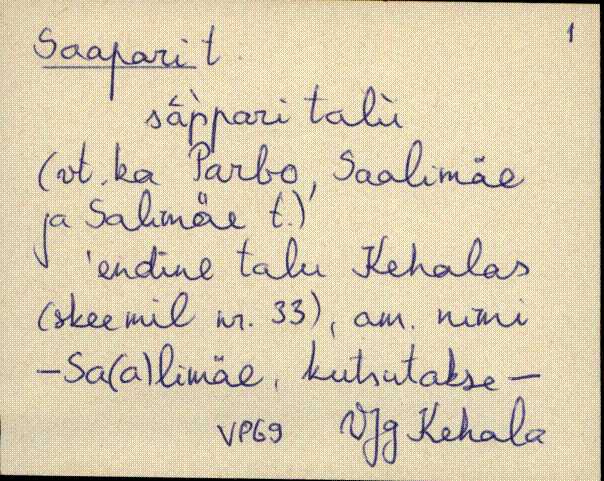 1
Saapari t.
sàp̀pari talù
(vt. ka Parbo, Saalimäe
ja Salimäe t.)
'endine talu Kehalas
(skeemil nr. 33), am. nimi
—Sa(a)limäe, kutsutakse—
VP69 VJg Kehala